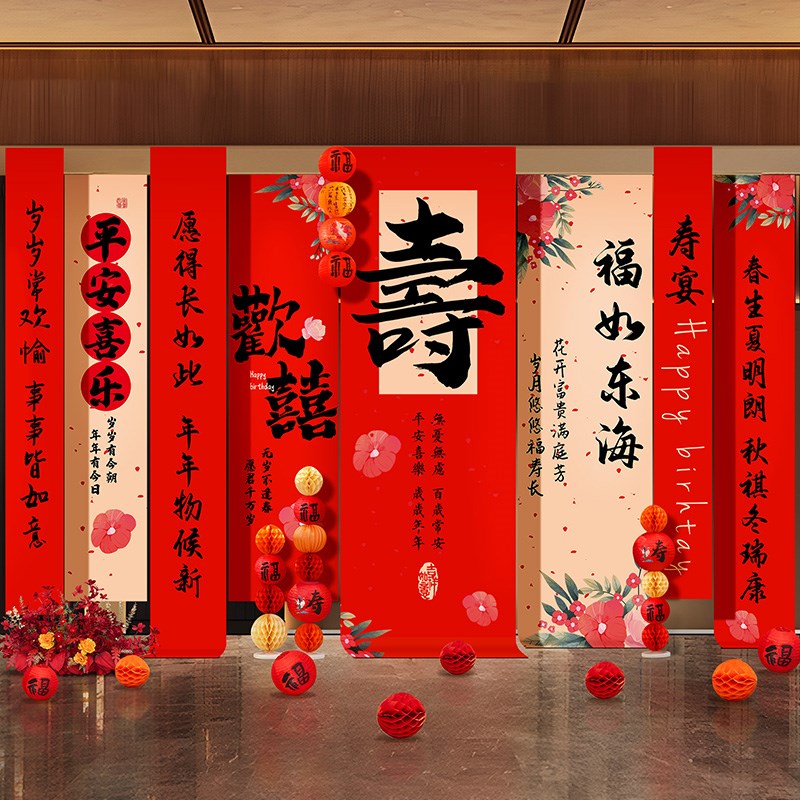 岁岁常欢愉 事事皆如意
平安喜乐
岁岁有今朝
年年有今日
愿得长如此 年年物候新
歡囍
Happy
birthday
无岁不逢春
愿君千万岁
福
福
壽
無憂無慮 百歲常安
平安喜樂 歲歲年年
福如东海
花开富貴满庭芳
岁月悠悠福寿长
寿宴
Happy birhtay
春生夏明朗 秋祺冬瑞康
福
福
寿
寿
福
福
福
福